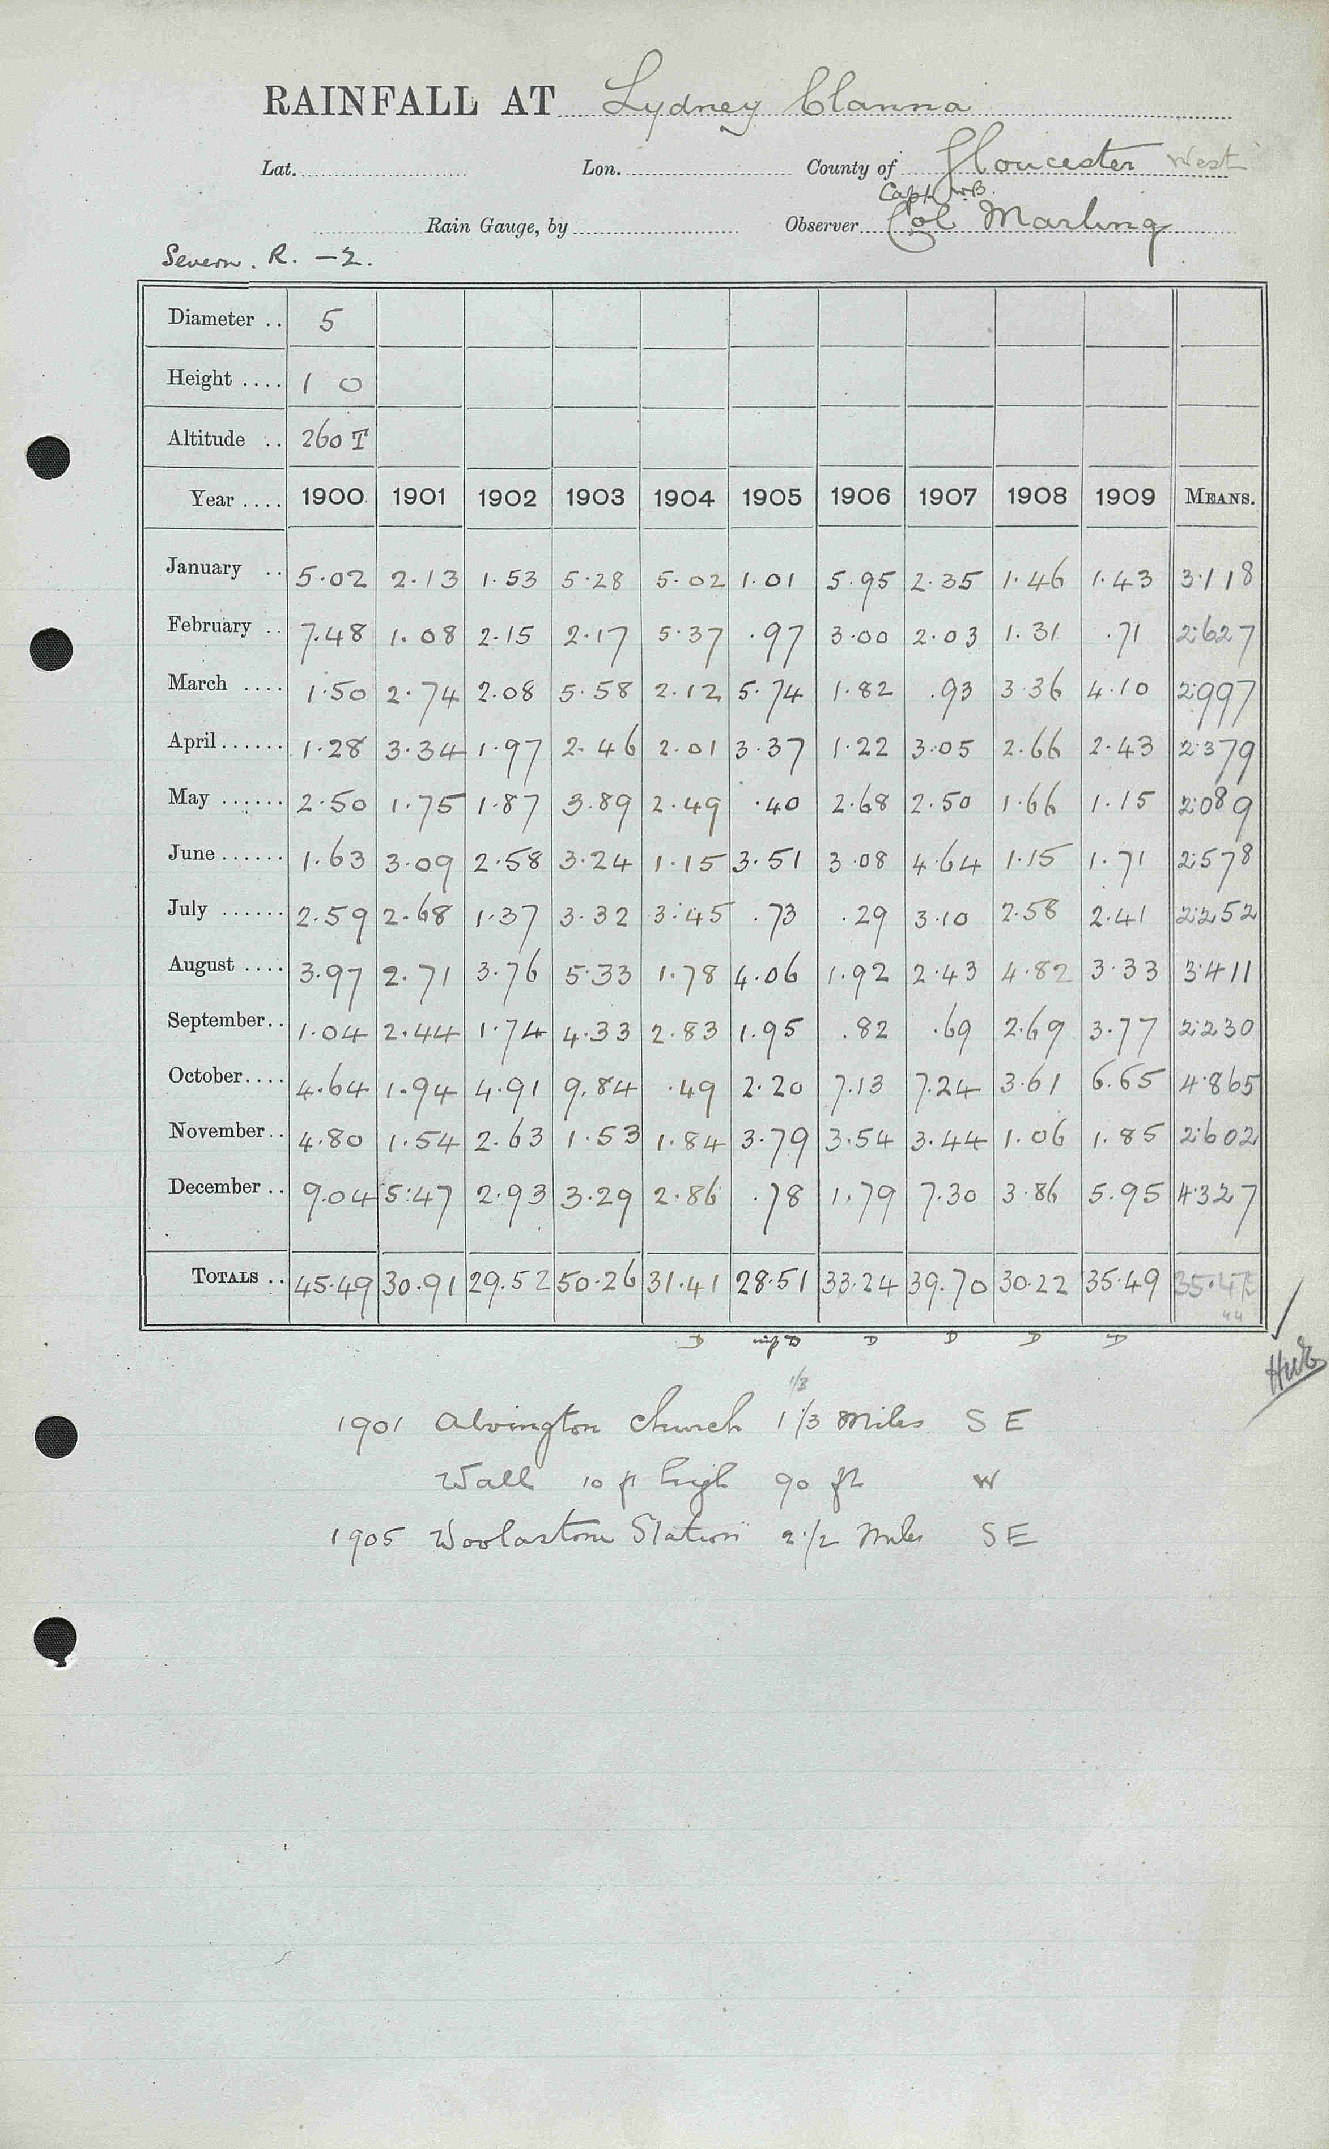 RAINFALL AT Lydney Clanna
Lat. Lon. County of Gloucester West
Capt. W.B.
Rain Gauge, by Observer Col Marling
Severn. R. —2.
Diameter .. 5
Height .... 1 0
Altitude .. 260 T
Year .... 1900 1901 1902 1903 1904 1905 1906 1907 1908 1909 MEANS.
January .. 5.02 2.13 1.53 5.28 5.02 1.01 5.95 2.35 1.46 1.43 3.118
February .. 7.48 1.08 2.15 2.17 5.37 .97 3.00 2.03 1.31 .71 2.627
March .... 1.50 2.74 2.08 5.58 2.12 5.74 1.82 .93 3.36 4.10 2.997
April...... 1.28 3.34 1.97 2.46 2.01 3.37 1.22 3.05 2.66 2.43 2.379
May ...... 2.50 1.75 1.87 3.89 2.49 .40 2.68 2.50 1.66 1.15 2.089
June...... 1.63 3.09 2.58 3.24 1.15 3.51 3.08 4.64 1.15 1.71 2.578
July ...... 2.59 2.68 1.37 3.32 3.45 .73 .29 3.10 2.58 2.41 2.252
August .... 3.97 2.71 3.76 5.33 1.78 4.06 1.92 2.43 4.82 3.33 3.411
September.. 1.04 2.44 1.74 4.33 2.83 1.95 .82 .69 2.69 3.77 2.230
October.... 4.64 1.94 4.91 9.84 .49 2.20 7.13 7.24 3.61 6.65 4.865
November.. 4.80 1.54 2.63 1.53 1.84 3.79 3.54 3.44 1.06 1.85 2.602
December .. 9.04 5.47 2.93 3.29 2.86 .78 1.79 7.30 3.86 5.95 4.327
TOTALS .. 45.49 30.91 29.52 50.26 31.41 28.51 33.24 39.70 30.22 35.49 35.47
44
D D D D D D
1/3
1901 Alvington Church 1 1/3 Miles S E
Wall 10 ft high 90 ft W
1905 Woolastone Station 2 1/2 Miles S E